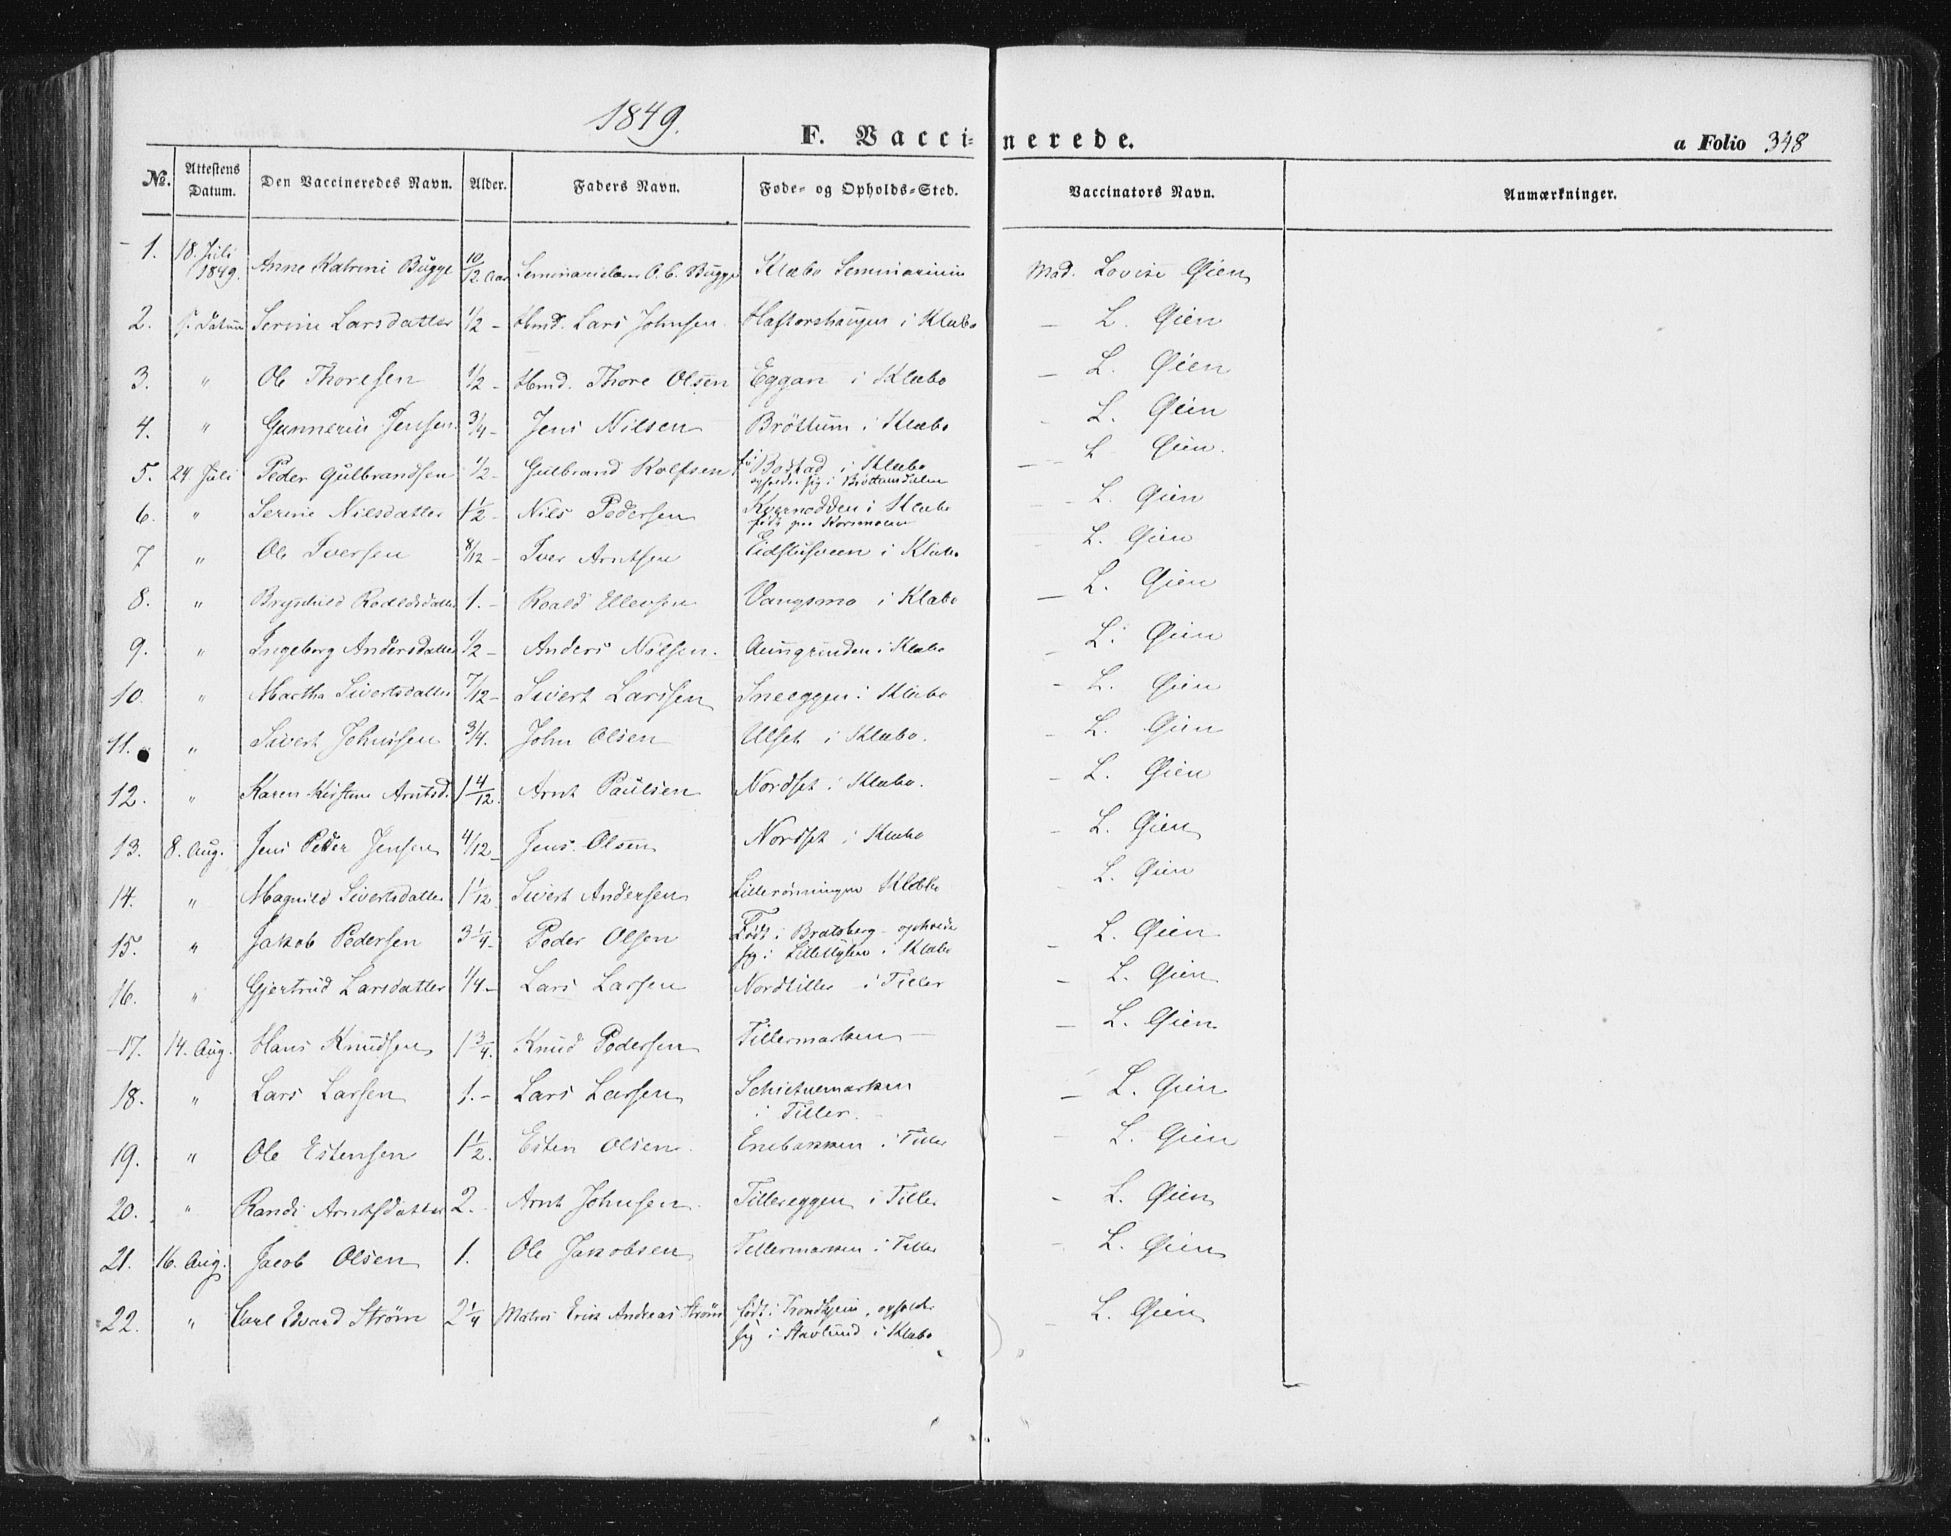 1849.
F. Vaccinerede.
a Folio 348
№. Attestens Datum. Den Vaccineredes Navn. Alder. Faders Navn. Føde- og Opholds-Sted. Vaccinators Navn. Anmærkninger.
1. 18. Juli 1849. Anne Katrine Bugge 10/12 Aar O. C. Bugge Klæbo Seminarium Mad. Lovise Øien
2. Datum Serine Larsdatter 1/2 - Hmd. Lars Johnsen Haftorshaugen i Klæbo - L. Øien
3. " Ole Thoresen 1/2 - Hmd. Thore Olsen Eggan i Klæbo - L. Øien
4. " Gunnerius Jensen 3/4 - Jens Nilsen Bröttum i Klæbo - L. Øien
5. 24 Juli Peder Gulbrandsen 1/2 - Gulbrand Rolfsen Bostad i Klæbo - L Øien.
opholder sig i Bröttumsdalen
6. " Serine Nilsdatter 1 1/2 - Nils Pedersen Kvernødden i Klæbo - L. Øien
født paa Korsmoen
7 " Ole Iversen 8/12 - Iver Arntsen Eidstusveen i Klæbo - L. Øien
8. " Brynhild Roaldsdatter 1. - Roald Ellevsen Vangsmo i Klæbo - L. Øien
9. " Ingeborg Andersdatter 1/2 - Anders Nilsen. i Klæbo - L. Øien
10. " Martha Sivertsdatter 7/12 - Sivert Larssen Sneeggen i Klæbo - L. Øien
11. " Sivert Johnssen 3/4. John Olsen Ulset i Klæbo. - L. Øien
12. " Karen Kirstine Arntsd. 1 4/12. Arnt Paulsen Nordset i Klæbo. - L. Øien
13. 8. Aug. Jens Peder Jensen 4/12 - Jens Olsen Nordset i Klæbo - L. Øien
14. " Magnild Sivertsdatter 1 1/12 Sivert Andersen Lillerönningen Klæbo - L. Øien
15. " Jakob Pedersen 3 1/4 - Peder Olsen Født i Bratsberg - opholder - L. Øien
sig i i Klæbo
16. " Gjertrud Larsdatter 1/4 - Lars Larsen Nordtiller i Tiller - L. Øien
17. 14. Aug. Hans Knudsen 1 3/4. Knud Pedersen Tillermarken - L. Øien
18. " Lars Larsen 1. - Lars Larsen Schietnemarken - L. Øien
i Tiller.
19. " Ole Estensen 1 1/2. Esten Olsen Enebakken i Tiller - L. Øien
20. " Randi Arntsdatter 2. Arnt Johnsen Tillereggen i Tiller - L. Øien
21. 16. Aug. Jacob Olsen 1. Ole Jakobsen Tillermarken i Tiller - L. Øien
22. " Carl Edvard Strøm 2 1/4 Matros Erik Andreas Strøm født i Trondhjem, opholder - L. Øien
sig i Havlund i Klæbo